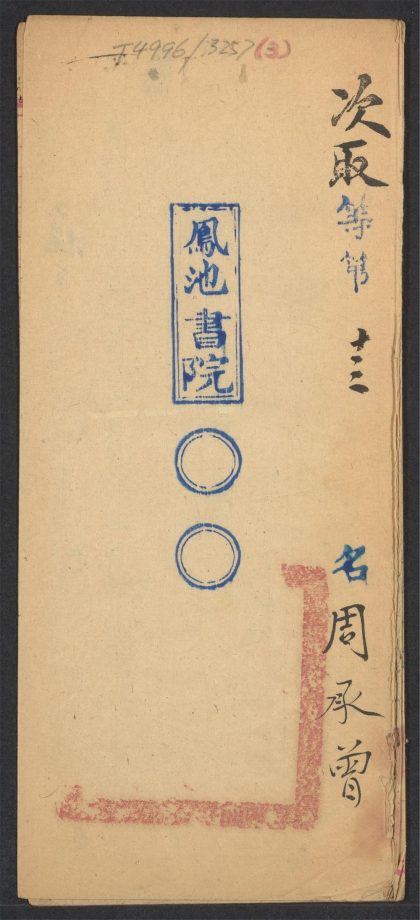 J4996/3257(3)
次取等第十三名周承曾
鳳池書院